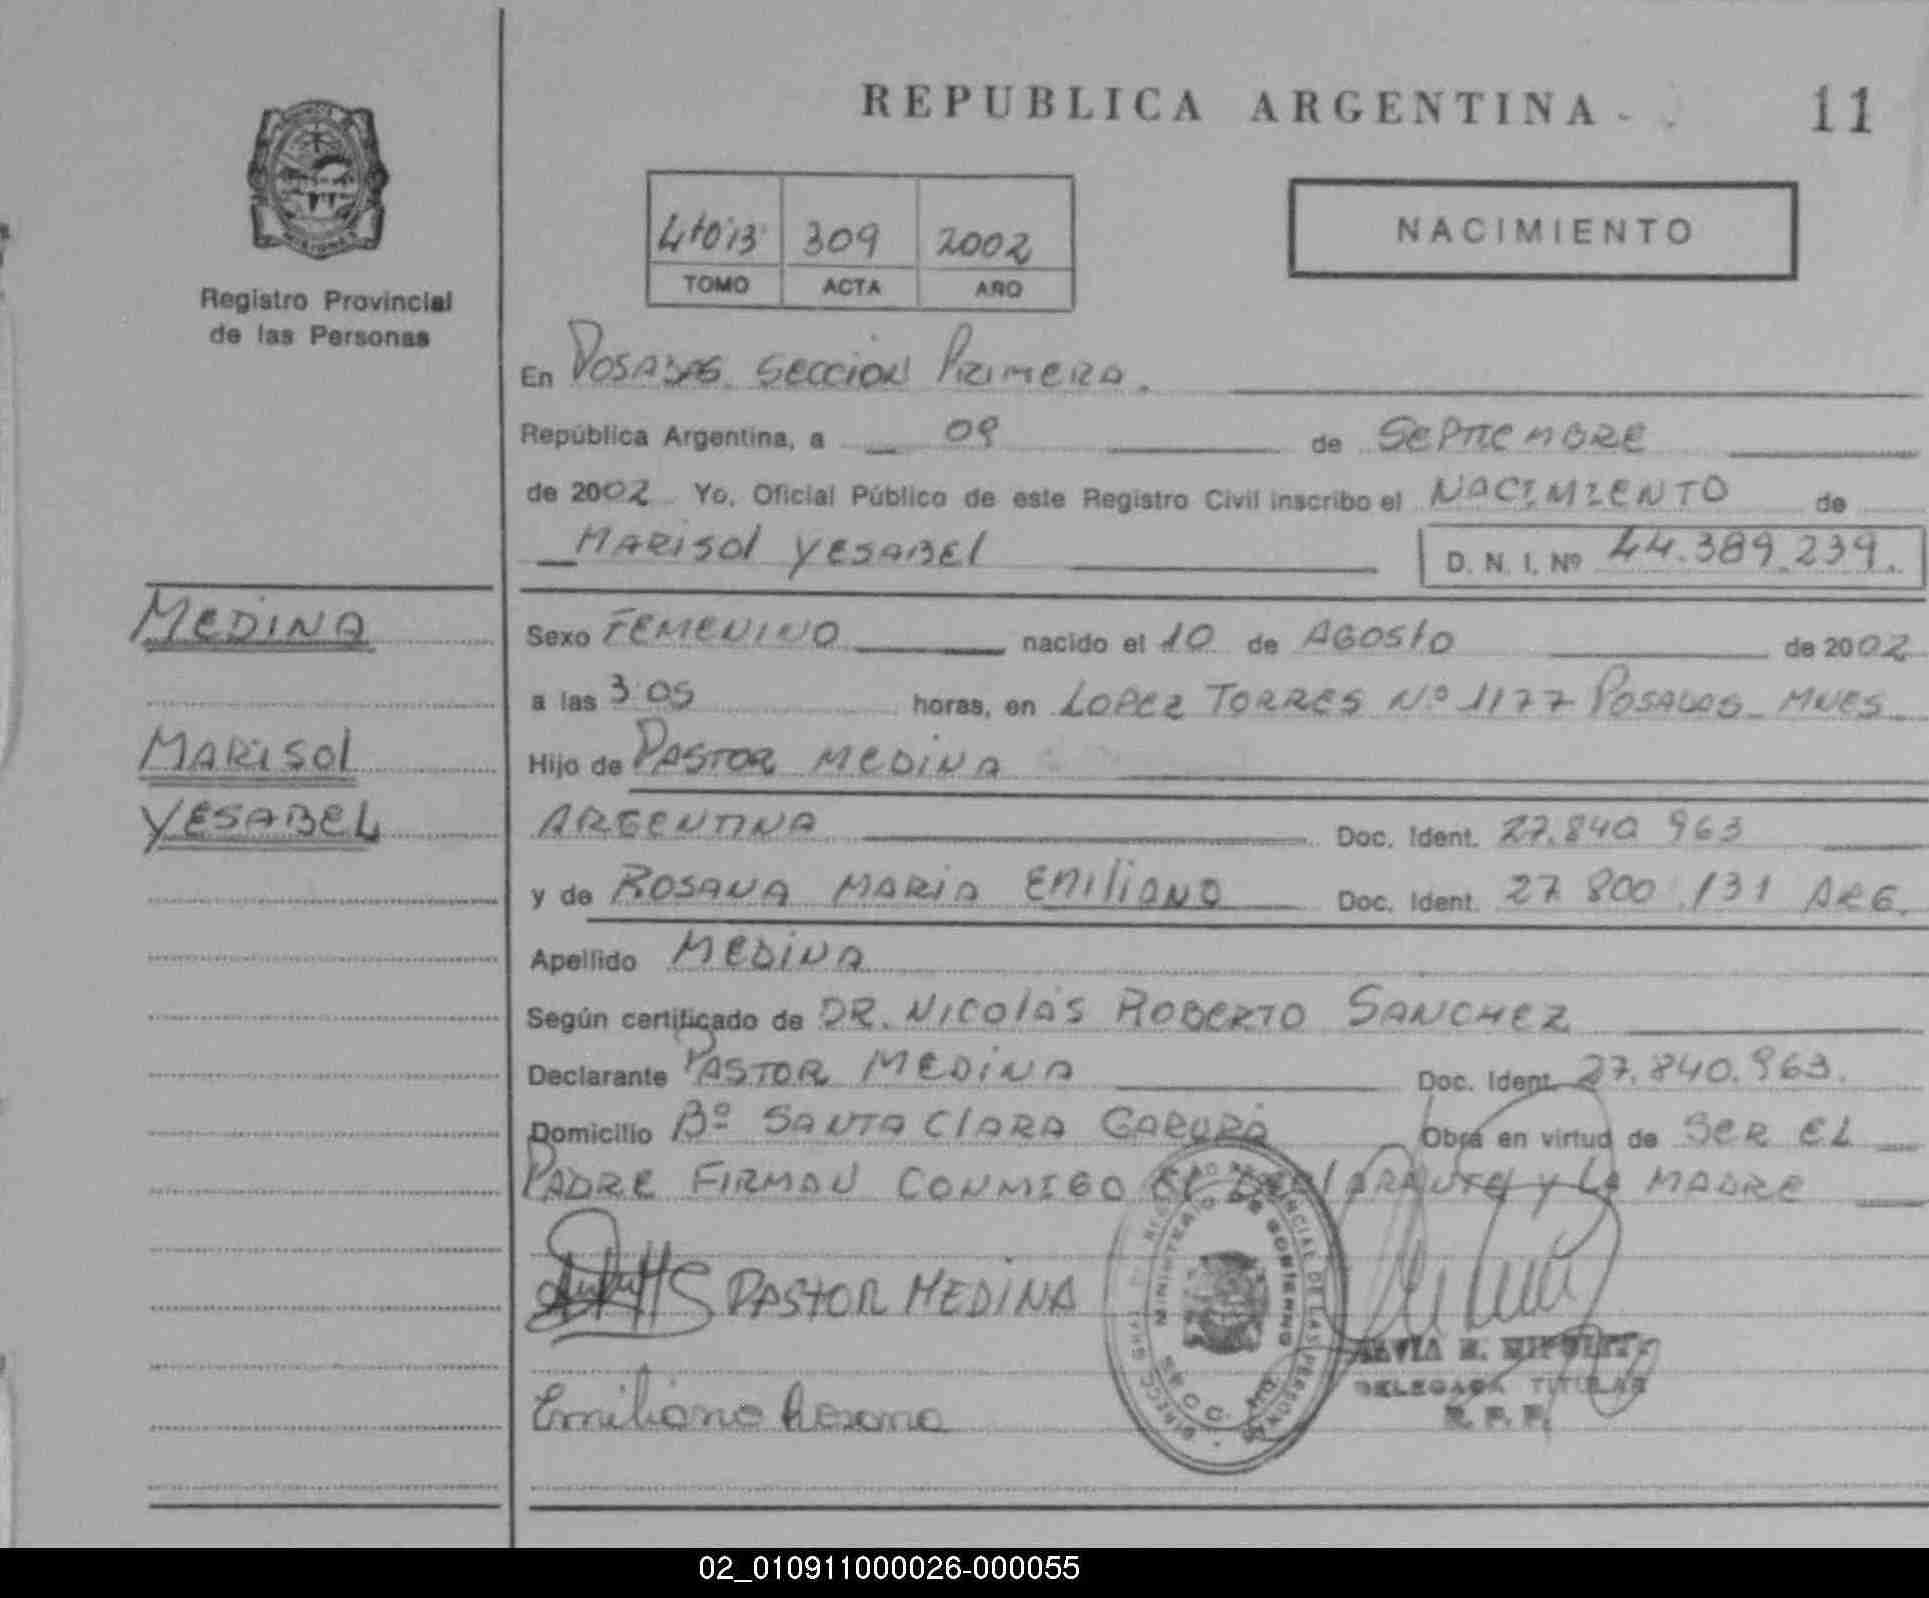 REPUBLICA ARGENTINA
11
309 2002
TOMO ACTA AÑO
NACIMIENTO
Registro Provincial
de las Personas
En POSADAS SECCION PRIMERA.
República Argentina, a 09 de SEPTIEMBRE
de 2002 Yo, Oficial Público de este Registro Civil inscribo el NACIMIENTO de
MARISOL YESABEL
D. N. I. Nº 44.389.239.
MEDINA
MARISOL
YESABEL
Sexo FEMENINO nacido el 10 de AGOSTO de 2002
a las 3:05 horas, en LOPEZ TORRES Nº 1177 POSADAS MNES
Hijo de PASTOR MEDINA
ARGENTINA Doc. Ident. 27.840 963
y de ROSANA MARIA EMILIANO Doc. Ident. 27 800 131 ARG.
Apellido MEDINA
Según certificado de DR. NICOLAS ROBERTO SANCHEZ
Declarante PASTOR MEDINA Doc. Ident. 27.840.963.
Domicilio Bº SANTA CLARA GARUPA Obra en virtud de SER EL
PADRE FIRMAN CONMIGO EL DECLARANTE Y LA MADRE
PASTOR MEDINA
Emiliano Rosana
DELEGADA TITULAR
R. P. P.
MINISTERIO DE GOBIERNO
02_010911000026-000055